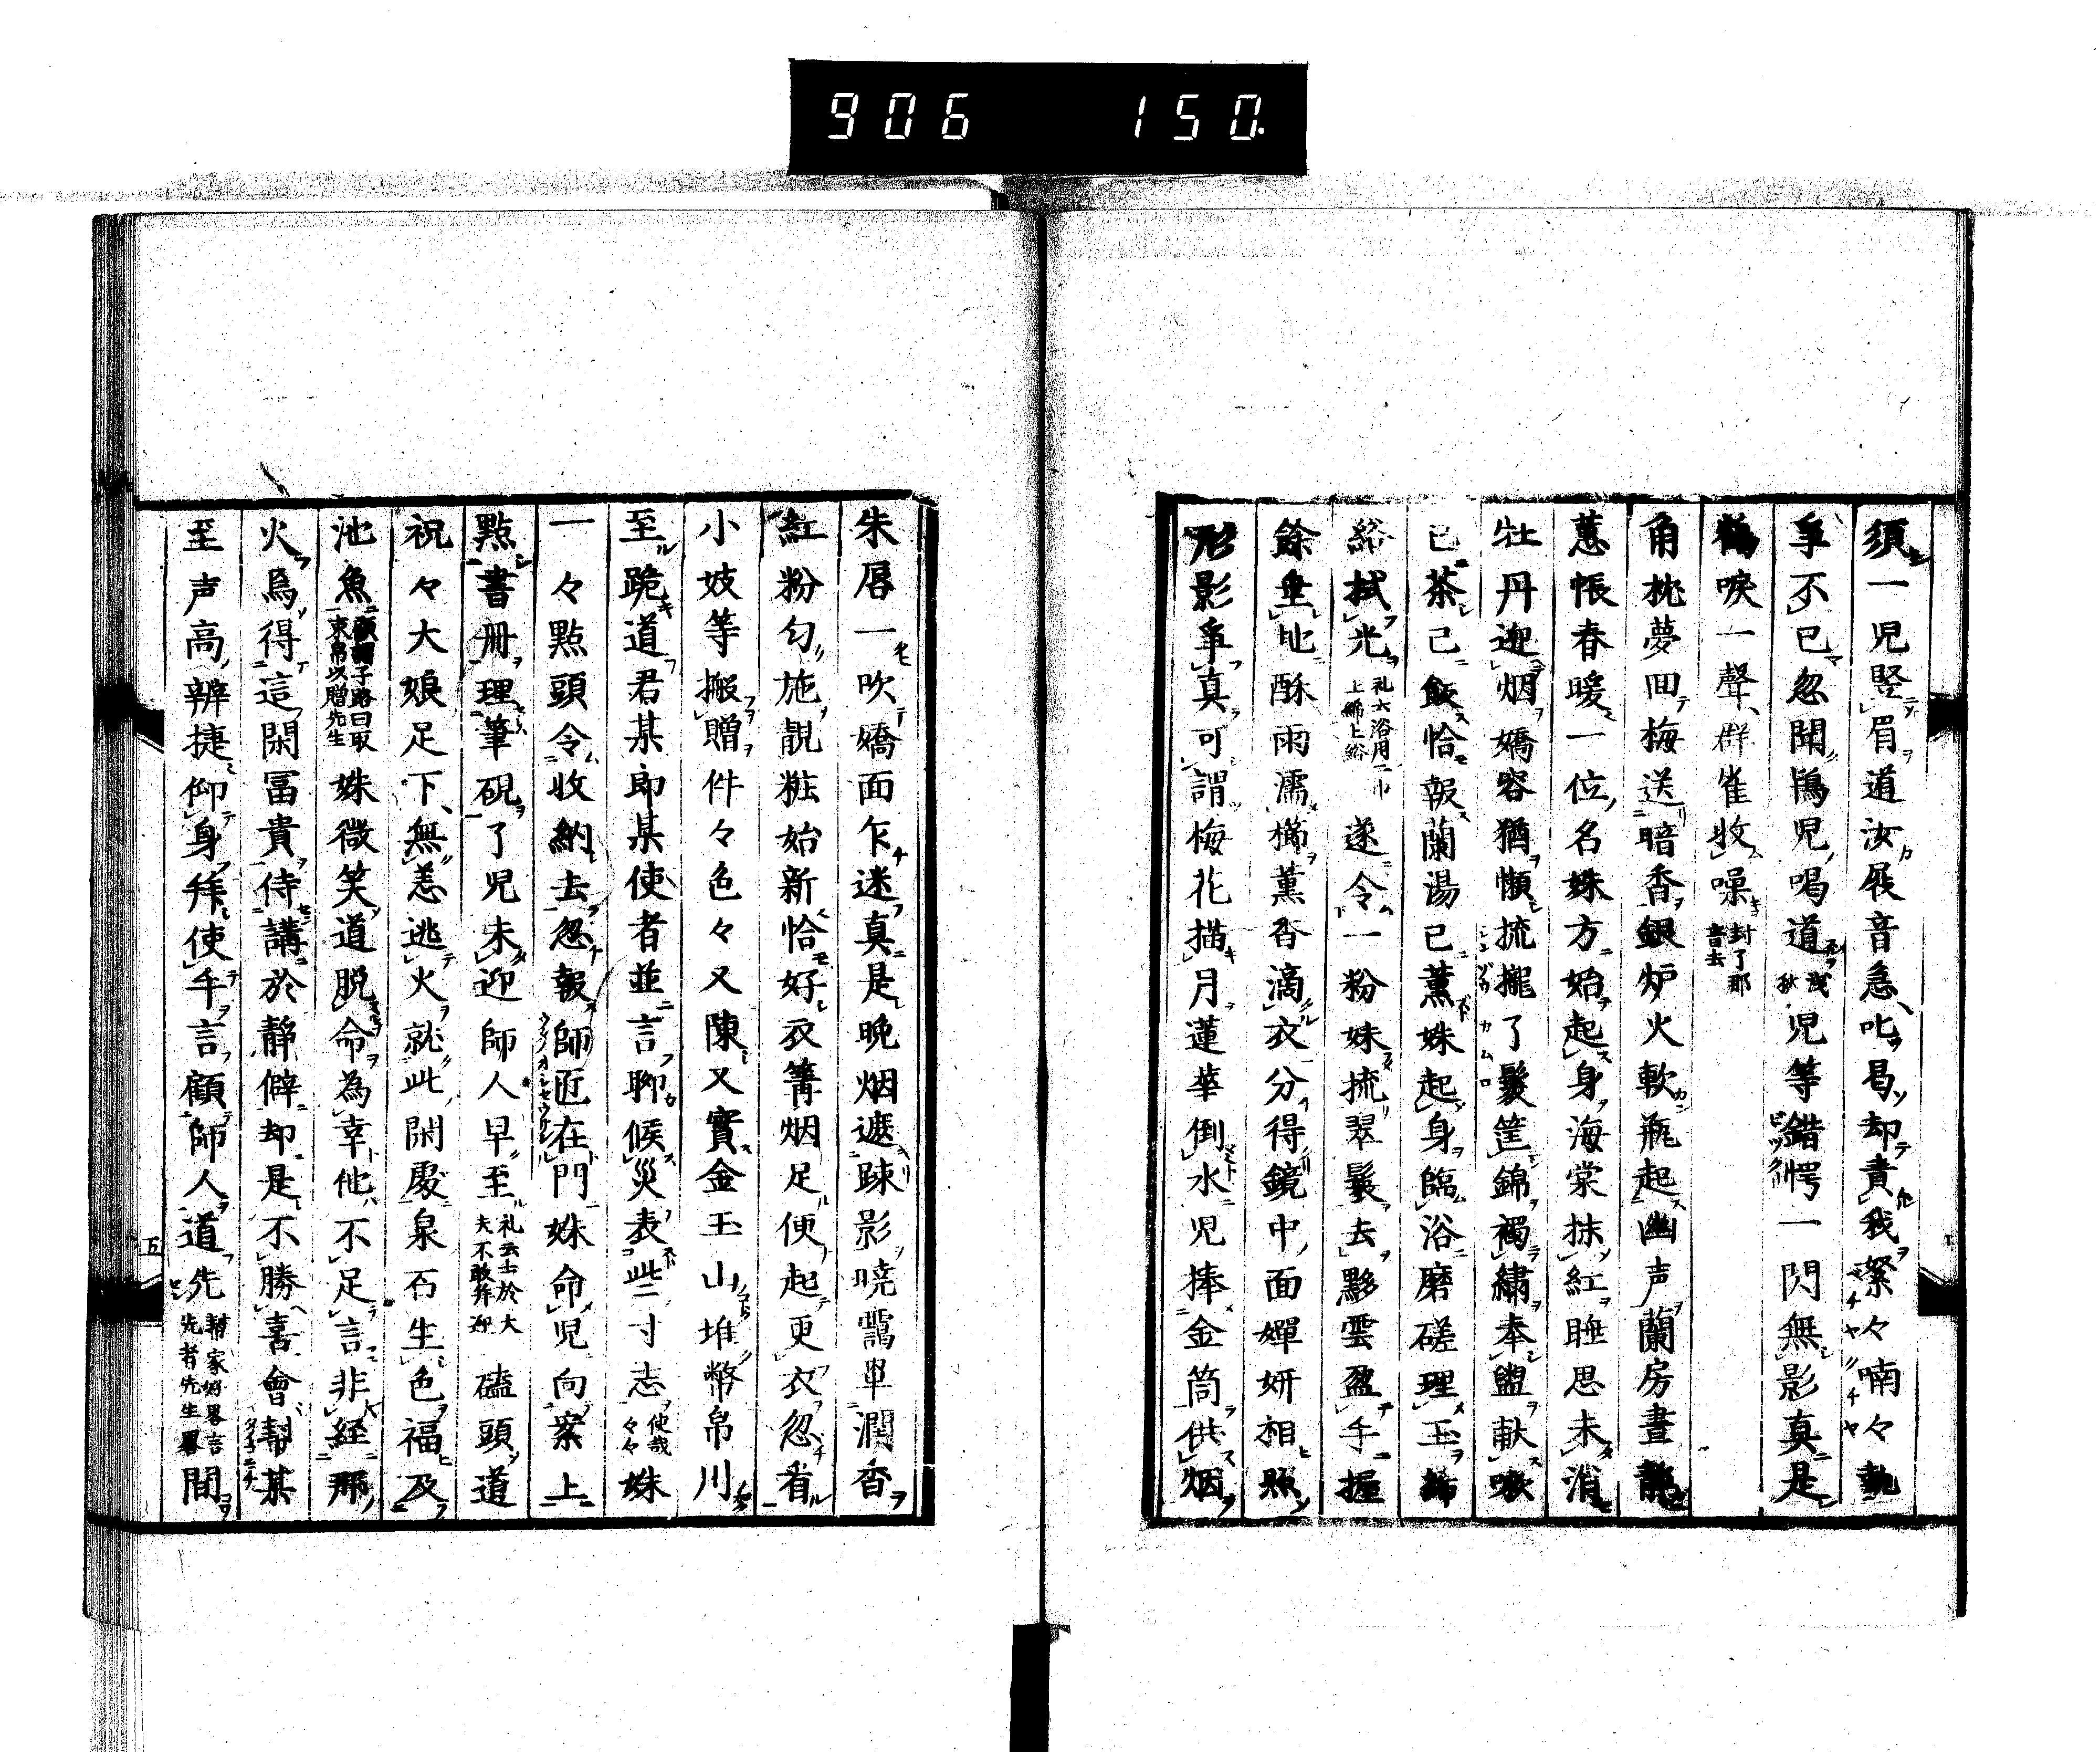 906 150
須一児竪眉道汝屐音急叱曷却責我絮々喃々執
争不已忽聞鴇児喝道児等錯愕一閃無影真是
鶴唳一聲群雀收噪 封了那書去
角枕夢回梅送暗香銀炉火軟瓶起幽声蘭房晝静
蕙帳春暖一位名姝方始起身海棠抹紅睡思未消
牡丹迎烟嬌容猶懶梳攏了髮筐錦襡繍奉盥献嗽
已茶已飯恰報蘭湯已薫姝起身臨浴磨磋理玉
綌拭光 礼六浴用二巾上絺上綌 遂令一粉妹梳翠鬟去黟雲盈手握
餘垂地酥雨濡櫛薫香滴衣分得鏡中面嬋妍相照
形影争真可謂梅花描月蓮華倒水児捧金筒供烟
朱唇一吹嬌面乍迷真是晩烟遮疎影暁靄単潤香
紅粉匀施靚粧始新恰好衣篝烟足便起更衣忽看
小妓等搬贈件々色々又陳又實金玉山堆幣帛川
至跪道君某郎某使者並言聊候災表些寸志 使哉々々 姝
一々點頭令收納去忽報師匠在門姝命児向案上
點書册理筆硯了児未迎師人早至 礼云士於大夫不敢拜迎 磕頭道
祝々大娘足下無恙逃火就此閑處泉石生色福及
池魚 顧謂子路曰取束帛以贈先生 姝微笑道脱命為幸他不足言非経那
火烏得這閑冨貴侍講於静僻却是不勝喜會幇某
至声高辨捷仰身拜使手言顧師人道先 幇家好畧言先者先生畧 間
五